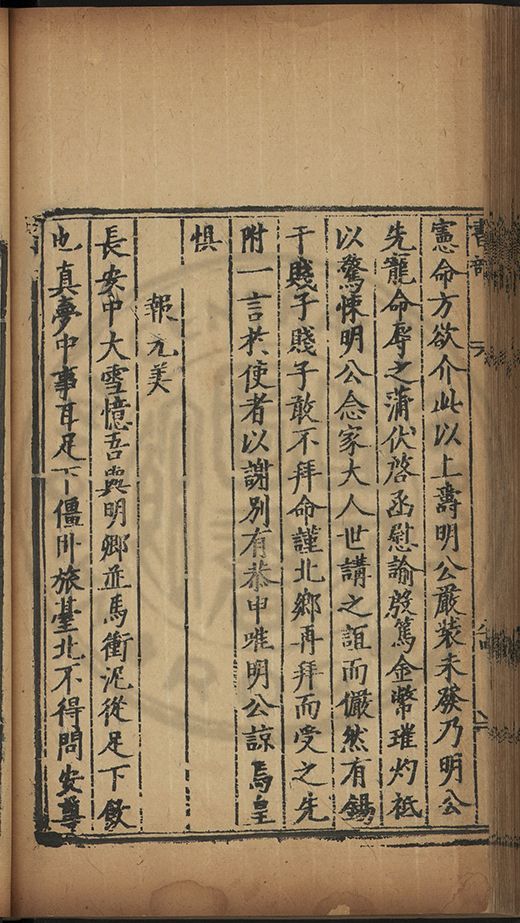 憲命方欲介此以上壽明公嚴裝未發乃明公
先寵命辱之蒲伏啓函慰諭殷篤金幣璀灼祗
以驚悚明公念家大人世講之誼而儼然有錫
于賤子賤子敢不拜命謹北鄉再拜而受之先
附一言於使者以謝別有恭申唯明公諒焉皇
惧
報元美
長安中大雪憶吾與明卿並馬衝泥從足下飲
也真夢中事耳足下僵卧旅臺北不得問安尊